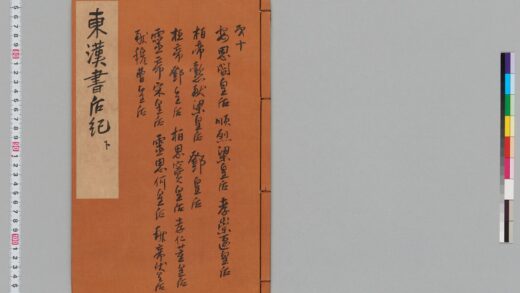 東漢書后紀 下
弓十
安思閻皇后 順烈梁皇后 孝崇匽皇后
桓帝懿献梁皇后 鄧皇后
桓帝鄧皇后 桓思竇皇后 孝仁董皇后
靈帝宋皇后 靈思何皇后 献帝伏皇后
献穆曹皇后